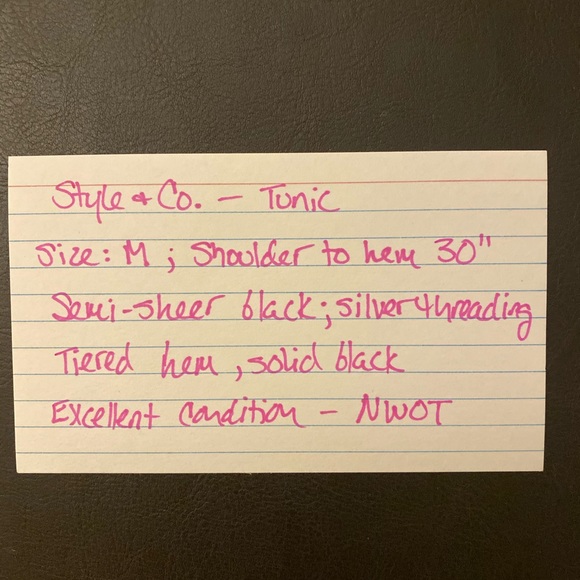 Style & Co. - Tunic
Size: M ; Shoulder to hem 30"
Semi-sheer black; silver threading
Tiered hem, solid black
Excellent condition - NWOT